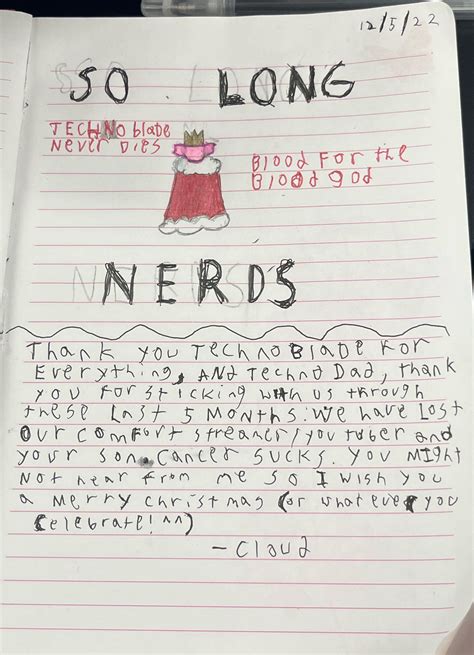 12/5/22
SO LONG
TECHNOblade
Never Dies
Blood For the
Blood God
NERDS
Thank you TechnoBlade For
Everything, AND Techno Dad, thank
you For sticking with us through
these Last 5 Months. We have Lost
Our comfort streamer/youtuber and
your son. Cancer sucks. you Might
Not hear from me so I wish you
a Merry christmas (or whatever you
celebrate! ^^)
- Cloud